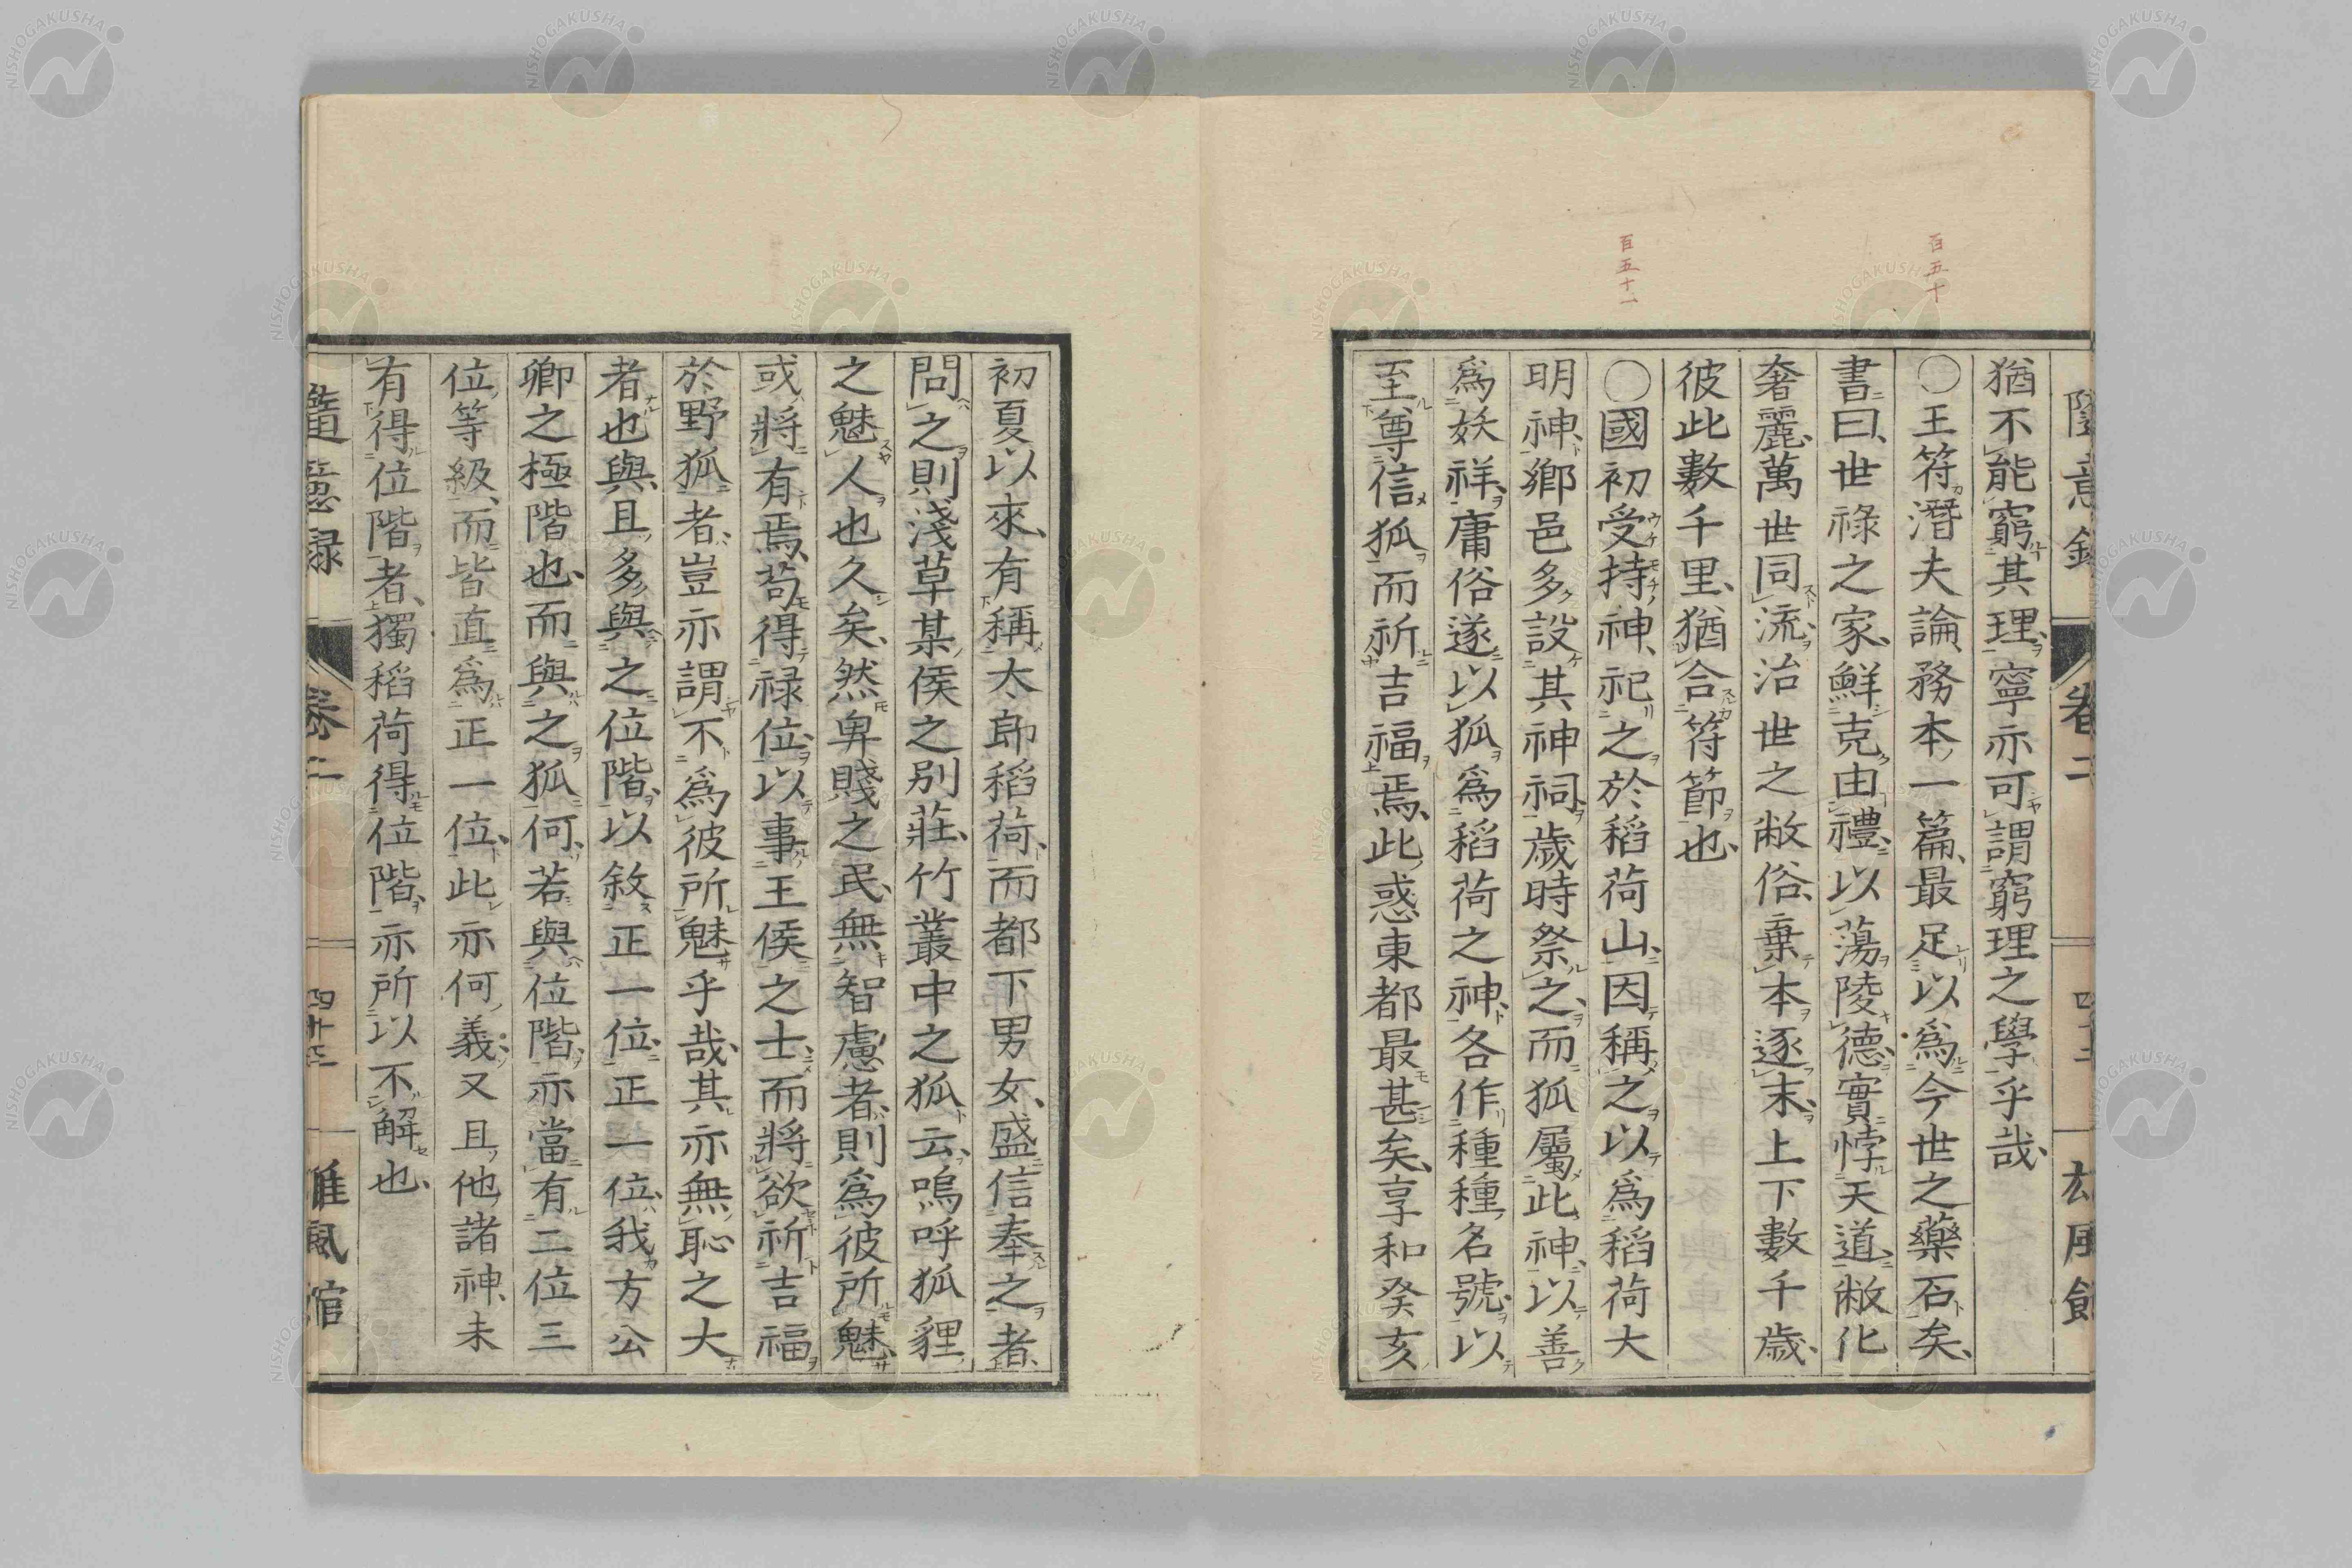 百五十
百五十一
隨意錄 卷二 四十二
猶不能窮其理寧亦可謂窮理之學乎哉
〇王符潛夫論務本一篇最足以爲今世之藥石矣
書曰世祿之家鮮克由禮以蕩陵德實悖天道敝化
奢麗萬世同流治世之敝俗棄本逐末上下數千歲
彼此數千里猶合符節也
〇國初受持神祀之於稻荷山因稱之以爲稻荷大
明神鄉邑多設其神祠歲時祭之而狐屬此神以善
爲妖祥庸俗遂以狐爲稻荷之神各作種種名號以
至尊信狐而祈吉福焉此惑東都最甚矣享和癸亥
初夏以來有稱太郎稻荷而都下男女盛信奉之者
問之則淺草某侯之別莊竹叢中之狐云嗚呼狐貍
之魅人也久矣然卑賤之民無智慮者則爲彼所魅
或將有焉苟得祿位以事王侯之士而將欲祈吉福
於野狐者豈亦謂不爲彼所魅乎哉其亦無恥之大
者也與且多與之位階以敘正一位正一位我方公
卿之極階也而與之狐何若與位階亦當有二位三
位等級而皆直爲正一位此亦何義又且他諸神未
有得位階者獨稻荷得位階亦所以不解也
隨意錄 卷二 四十三 雄風館
NISHOGAKUSHA